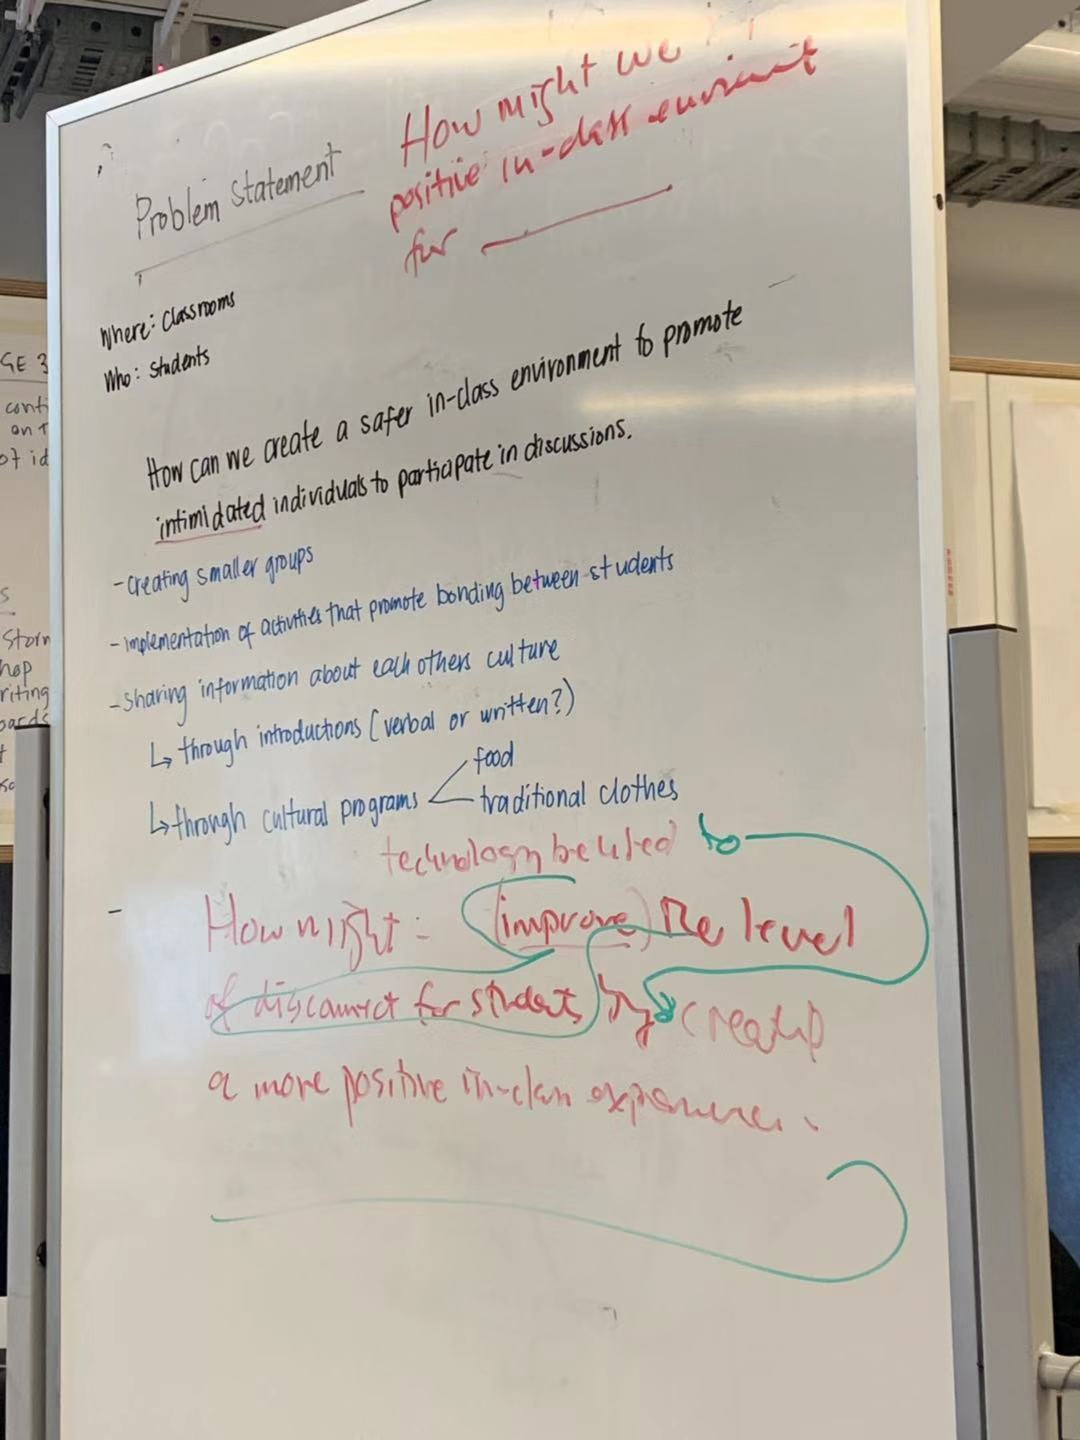 Problem Statement
How might we
positive in-class
for
Where: Classrooms
Who: Students
How can we create a safer in-class environment to promote
intimidated individuals to participate in discussions.
- creating smaller groups
- implementation of activities that promote bonding between students
- sharing information about each others culture
↳ through introductions (verbal or written?)
↳ through cultural programs
food
traditional clothes
technology be used to
- How might : (improve) the level
of disconnect for students by
a more positive in-class
GE 3
conti
on T
of id
s
storm
hop
riting
oards